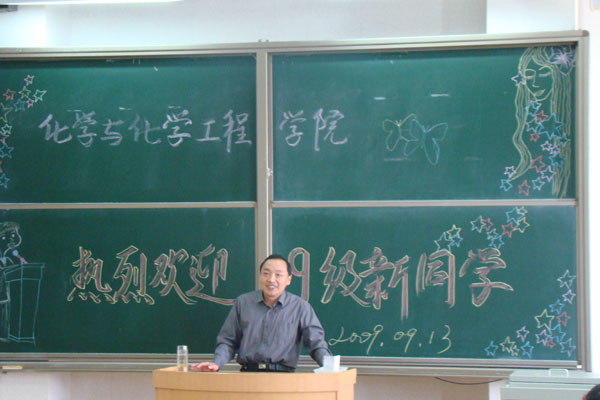 化学与化学工程学院
热烈欢迎09级新同学
2009.09.13